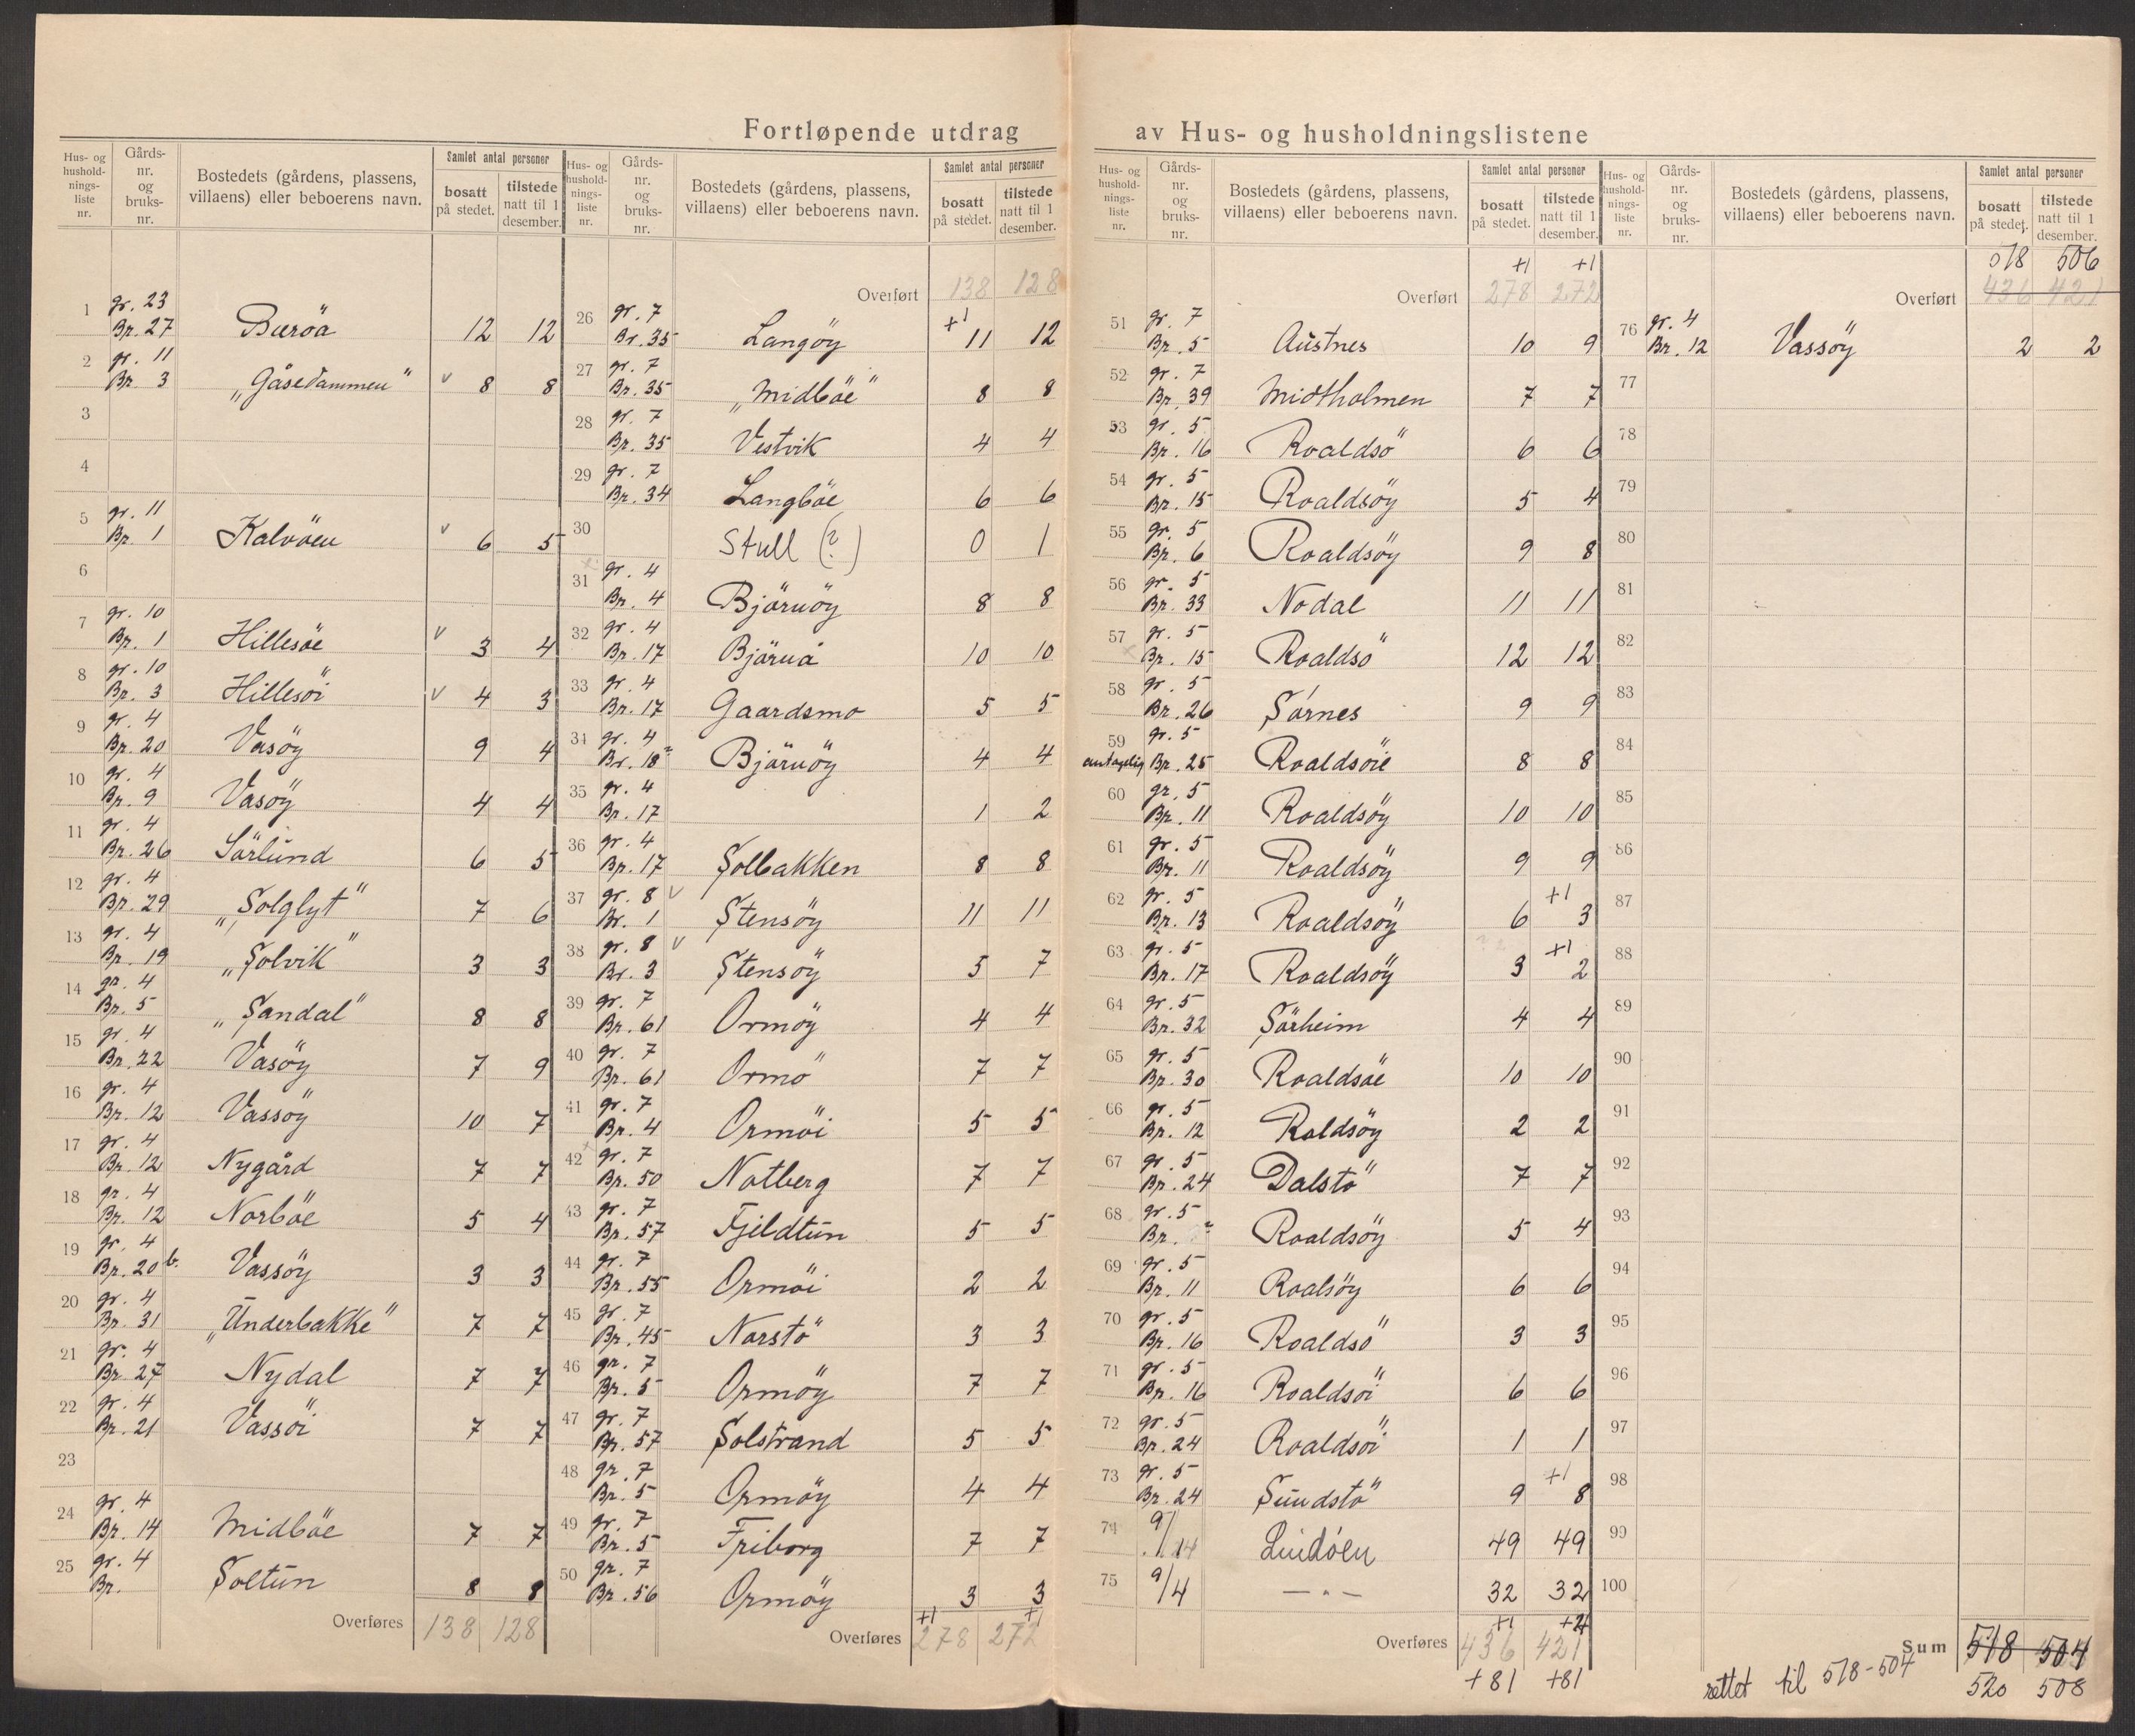 Fortløpende utdrag av Hus- og husholdningslistene
Hus- og husholdnings-liste nr. | Gårds-nr. og bruks-nr. | Bostedets (gårdens, plassens, villaens) eller beboerens navn. | Samlet antal personer bosatt på stedet. | tilstede natt til 1 desember.
1 gr. 23 Br. 27 Buröa 12 12
2 gr. 11 Br. 3 „Gåsedammen" v 8 8
3
4
5 gr. 11 Br. 1 Kalvöen v 6 5
6
7 gr. 10 Br. 1 Hillesöe v 3 4
8 gr. 10 Br. 3 Hillesöi v 4 3
9 gr. 4 Br. 20 Vasöy 9 4
10 gr. 4 Br. 9 Vasöy 4 4
11 gr. 4 Br. 26 Sörlund 6 5
12 gr. 4 Br. 29 „Solglyt" 7 6
13 gr. 4 Br. 19 „Solvik" 3 3
14 gr. 4 Br. 5 „Sandal" 8 8
15 gr. 4 Br. 22 Vasöy 7 9
16 gr. 4 Br. 12 Vassöy 10 7
17 gr. 4 Br. 12 Nygård 7 7
18 gr. 4 Br. 12 Norböe 5 4
19 gr. 4 Br. 20 b. Vassöy 3 3
20 gr. 4 Br. 31 „Underbakke" 7 7
21 gr. 4 Br. 27 Nydal 7 7
22 gr. 4 Br. 21 Vassöi 7 7
23
24 gr. 4 Br. 14 Midböe 7 7
25 gr. 4 Br. Soltun 8 8
Overføres 138 128
Hus- og husholdnings-liste nr. | Gårds-nr. og bruks-nr. | Bostedets (gårdens, plassens, villaens) eller beboerens navn. | Samlet antal personer bosatt på stedet. | tilstede natt til 1 desember.
Overført 138 128
26 gr. 7 Br. 35 Langöy +1 11 12
27 gr. 7 Br. 35 „Midböe" 8 8
28 gr. 7 Br. 35 Vestvik 4 4
29 gr. 7 Br. 34 Langböe 6 6
30 Stull (?) 0 1
31 gr. 4 Br. 4 Björnöy 8 8
32 gr. 4 Br. 17 Björnö 10 10
33 gr. 4 Br. 17 Gaardsmo 5 5
34 gr. 4 Br. 18 Björnöy 4 4
35 gr. 4 Br. 17 1 2
36 gr. 4 Br. 17 Solbakken 8 8
37 gr. 8 v Br. 1 Stensöy 11 11
38 gr. 8 v Br. 3 Stensöy 5 7
39 gr. 7 Br. 61 Ormöy 4 4
40 gr. 7 Br. 61 Ormö 7 7
41 gr. 7 Br. 4 Ormöi 5 5
42 gr. 7 Br. 50 Notberg 7 7
43 gr. 7 Br. 57 Fjeldtun 5 5
44 gr. 7 Br. 55 Ormöi 2 2
45 gr. 7 Br. 45 Norstö 3 3
46 gr. 7 Br. 5 Ormöy 7 7
47 gr. 7 Br. 57 Solstrand 5 5
48 gr. 7 Br. 5 Ormöy 4 4
49 gr. 7 Br. 5 Friborg 7 7
50 gr. 7 Br. 56 Ormöy 3 3
+1 +1
Overføres 278 272
Hus- og husholdnings-liste nr. | Gårds-nr. og bruks-nr. | Bostedets (gårdens, plassens, villaens) eller beboerens navn. | Samlet antal personer bosatt på stedet. | tilstede natt til 1 desember.
+1 +1
Overført 278 272
51 gr. 7 Br. 5 Austnes 10 9
52 gr. 7 Br. 39 Midtholmen 7 7
53 gr. 5 Br. 16 Roaldsö 6 6
54 gr. 5 Br. 15 Roaldsöy 5 4
55 gr. 5 Br. 6 Roaldsöy 9 8
56 gr. 5 Br. 33 Nodal 11 11
57 gr. 5 Br. 15 Roaldsö 12 12
58 gr. 5 Br. 26 Sörnes 9 9
59 antagelig gr. 5 Br. 25 Roaldsöie 8 8
60 gr. 5 Br. 11 Roaldsöy 10 10
61 gr. 5 Br. 11 Roaldsöy 9 9
62 gr. 5 Br. 13 Roaldsöy 6 +1 3
63 gr. 5 Br. 17 Roaldsöy 3 +1 2
64 gr. 5 Br. 32 Sörheim 4 4
65 gr. 5 Br. 30 Roaldsöe 10 10
66 gr. 5 Br. 12 Roldsöy 2 2
67 gr. 5 Br. 24 Dalstö 7 7
68 gr. 5 Br. ? Roaldsöy 5 4
69 gr. 5 Br. 11 Roalsöy 6 6
70 gr. 5 Br. 16 Roaldsö 3 3
71 gr. 5 Br. 16 Roaldsöi 6 6
72 gr. 5 Br. 24 Roaldsöi 1 1
73 gr. 5 Br. 24 Sundstö 9 +1 8
74 9/ Lindöen 49 49
75 9/4 — " — 32 32
+1 +4
Overføres 436 421
+81 +81
Hus- og husholdnings-liste nr. | Gårds-nr. og bruks-nr. | Bostedets (gårdens, plassens, villaens) eller beboerens navn. | Samlet antal personer bosatt på stedet. | tilstede natt til 1 desember.
518 506
Overført 436 421
76 gr. 4 Br. 12 Vassöy 2 2
77
78
79
80
81
82
83
84
85
86
87
88
89
90
91
92
93
94
95
96
97
98
99
100
Sum 518 504
rettet til 518-504 520 508